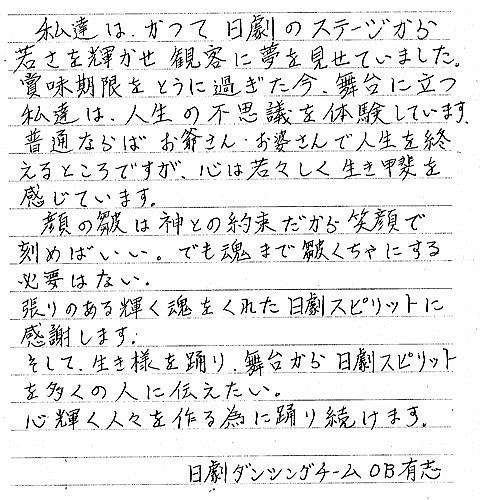 私達は、かつて日劇のステージから
若さを輝かせ観客に夢を見せていました。
賞味期限をとうに過ぎた今、舞台に立つ
私達は、人生の不思議を体験しています。
普通ならば お爺さん・お婆さんで人生を終
えるところですが、心は若々しく生き甲斐を
感じています。
顔の皺は神との約束だから笑顔で
刻めばいい。でも魂まで皺くちゃにする
必要はない。
張りのある輝く魂をくれた日劇スピリットに
感謝します。
そして、生き様を踊り、舞台から日劇スピリット
を多くの人に伝えたい。
心輝く人々を作る為に踊り続けます。
日劇ダンシングチームOB有志